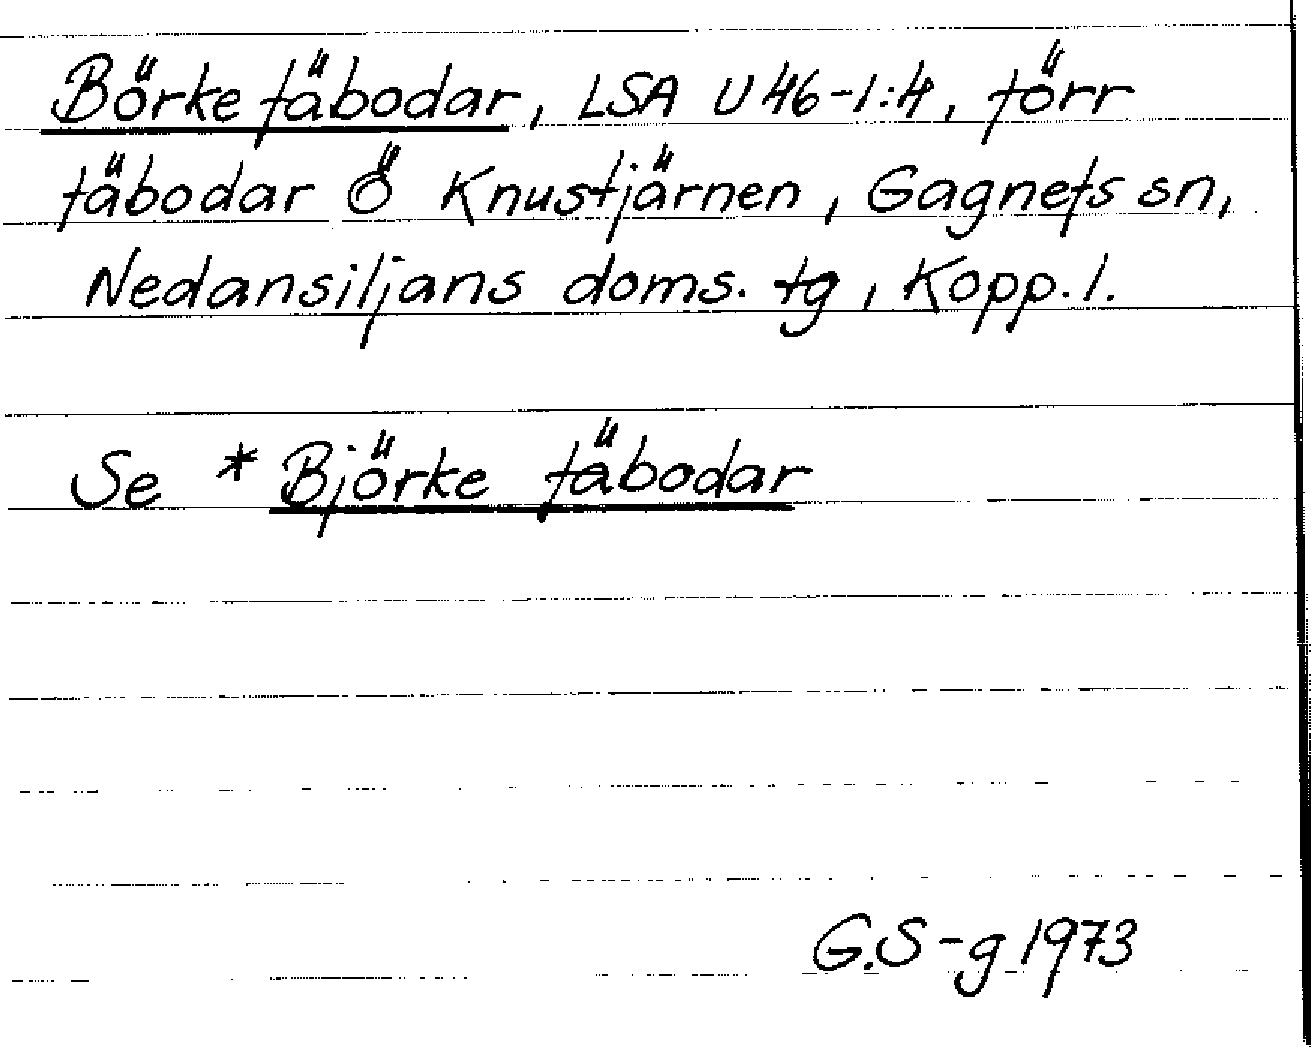 Börke fäbodar, LSA U 46-1:4, förr
fäbodar Ö Knustjärnen, Gagnefs sn,
Nedansiljans doms. tg, Kopp. l.
Se * Björke fäbodar
G.S-g 1973